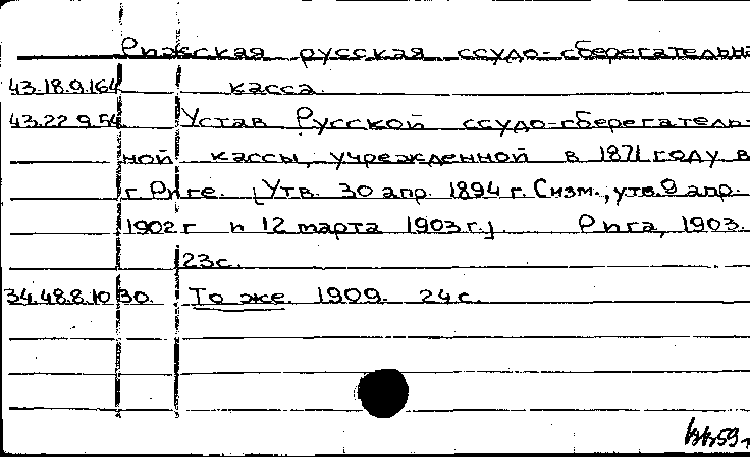 Рижская русская ссудо-сберегательна
43.18.9.164 касса.
43.22.9.54 Устав Русской ссудо-сберегатель-
ной кассы, учрежденной в 1871 году в
г. Риге. [Утв. 30 апр. 1894 г. С изм., утв. 9 апр.
1902 г и 12 марта 1903 г.] Рига, 1903.
23 с.
34.48.8.10 30. То же. 1909. 24 с.